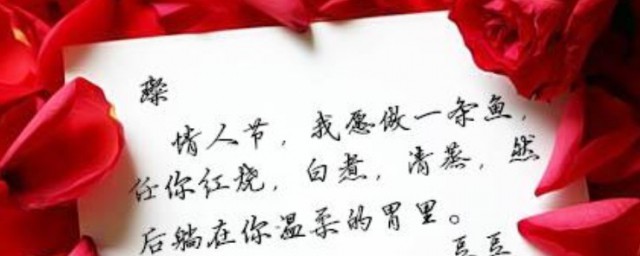 璨
情人节，我愿做一条鱼，
任你红烧，白煮，清蒸，然
后躺在你温柔的胃里。
豆豆